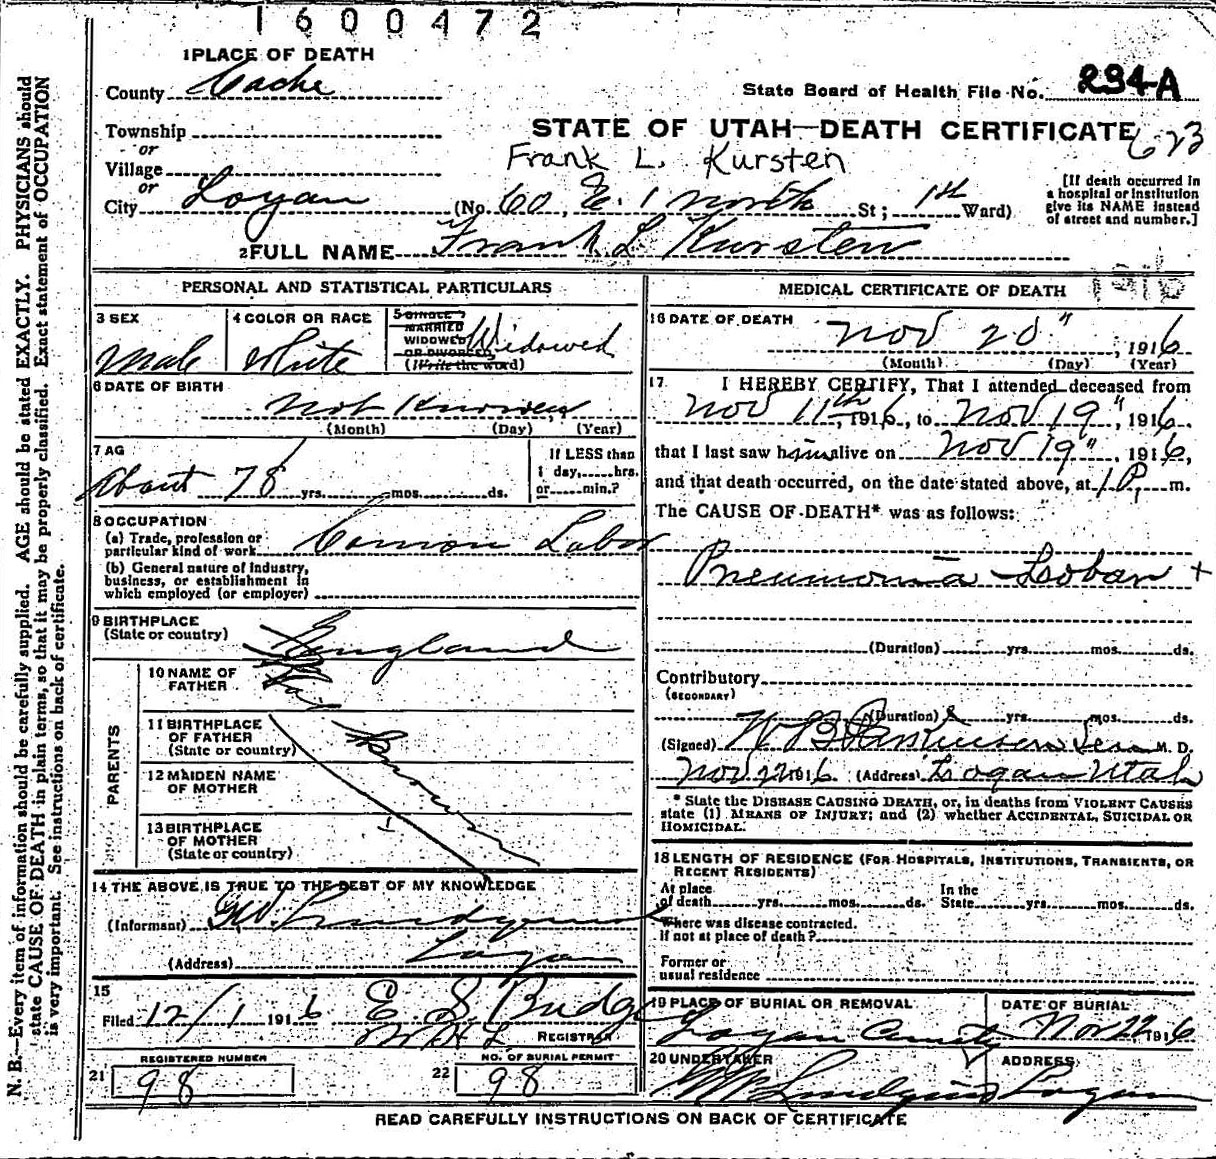 1600472
1 PLACE OF DEATH
County Cache
State Board of Health File No. 294-A
Township
or
STATE OF UTAH—DEATH CERTIFICATE 623
Village
Frank L. Kursten
or
City Logan (No. 60, E. 1 North St; 1th Ward)
[If death occurred in a hospital or institution give its NAME instead of street and number.]
2 FULL NAME Frank L Kursten
PERSONAL AND STATISTICAL PARTICULARS
3 SEX Male
4 COLOR OR RACE White
5 SINGLE MARRIED WIDOWED OR DIVORCED (Write the word) Widowed
6 DATE OF BIRTH
Not Knowen
(Month) (Day) (Year)
7 AG
About 78 yrs. mos. ds.
If LESS than 1 day, hrs. or min.?
8 OCCUPATION
(a) Trade, profession or
particular kind of work Common Labor
(b) General nature of industry,
business, or establishment in
which employed (or employer)
9 BIRTHPLACE
(State or country) England
PARENTS
10 NAME OF
FATHER
11 BIRTHPLACE
OF FATHER
(State or country)
12 MAIDEN NAME
OF MOTHER
13 BIRTHPLACE
OF MOTHER
(State or country)
14 THE ABOVE IS TRUE TO THE BEST OF MY KNOWLEDGE
(Informant)
(Address) Logan
15
Filed 12/1 1916 E S Budge
REGISTRAR
REGISTERED NUMBER
21 98
NO. OF BURIAL PERMIT
22 98
MEDICAL CERTIFICATE OF DEATH 1916
16 DATE OF DEATH
Nov 20", 1916
(Month) (Day) (Year)
17 I HEREBY CERTIFY, That I attended deceased from
Nov 11th, 1916, to Nov 19", 1916.
that I last saw him alive on Nov 19", 1916,
and that death occurred, on the date stated above, at 1 P. m.
The CAUSE OF DEATH* was as follows:
Pneumonia Lobar +
(Duration) yrs. mos. ds.
Contributory
(SECONDARY)
(Duration) yrs. mos. ds.
(Signed) W B Parkinson M. D.
Nov. 22 1916. (Address) Logan Utah
* State the DISEASE CAUSING DEATH, or, in deaths from VIOLENT CAUSES
state (1) MEANS OF INJURY; and (2) whether ACCIDENTAL, SUICIDAL OR
HOMICIDAL.
18 LENGTH OF RESIDENCE (FOR HOSPITALS, INSTITUTIONS, TRANSIENTS, OR
RECENT RESIDENTS)
At place In the
of death yrs. mos. ds. State yrs. mos. ds.
Where was disease contracted.
if not at place of death?
Former or
usual residence
19 PLACE OF BURIAL OR REMOVAL
DATE OF BURIAL
Nov 22 1916
20 UNDERTAKER
ADDRESS
Logan
READ CAREFULLY INSTRUCTIONS ON BACK OF CERTIFICATE
N. B.—Every item of information should be carefully supplied. AGE should be stated EXACTLY. PHYSICIANS should
state CAUSE OF DEATH in plain terms, so that it may be properly classified. Exact statement of OCCUPATION
is very important. See instructions on back of certificate.